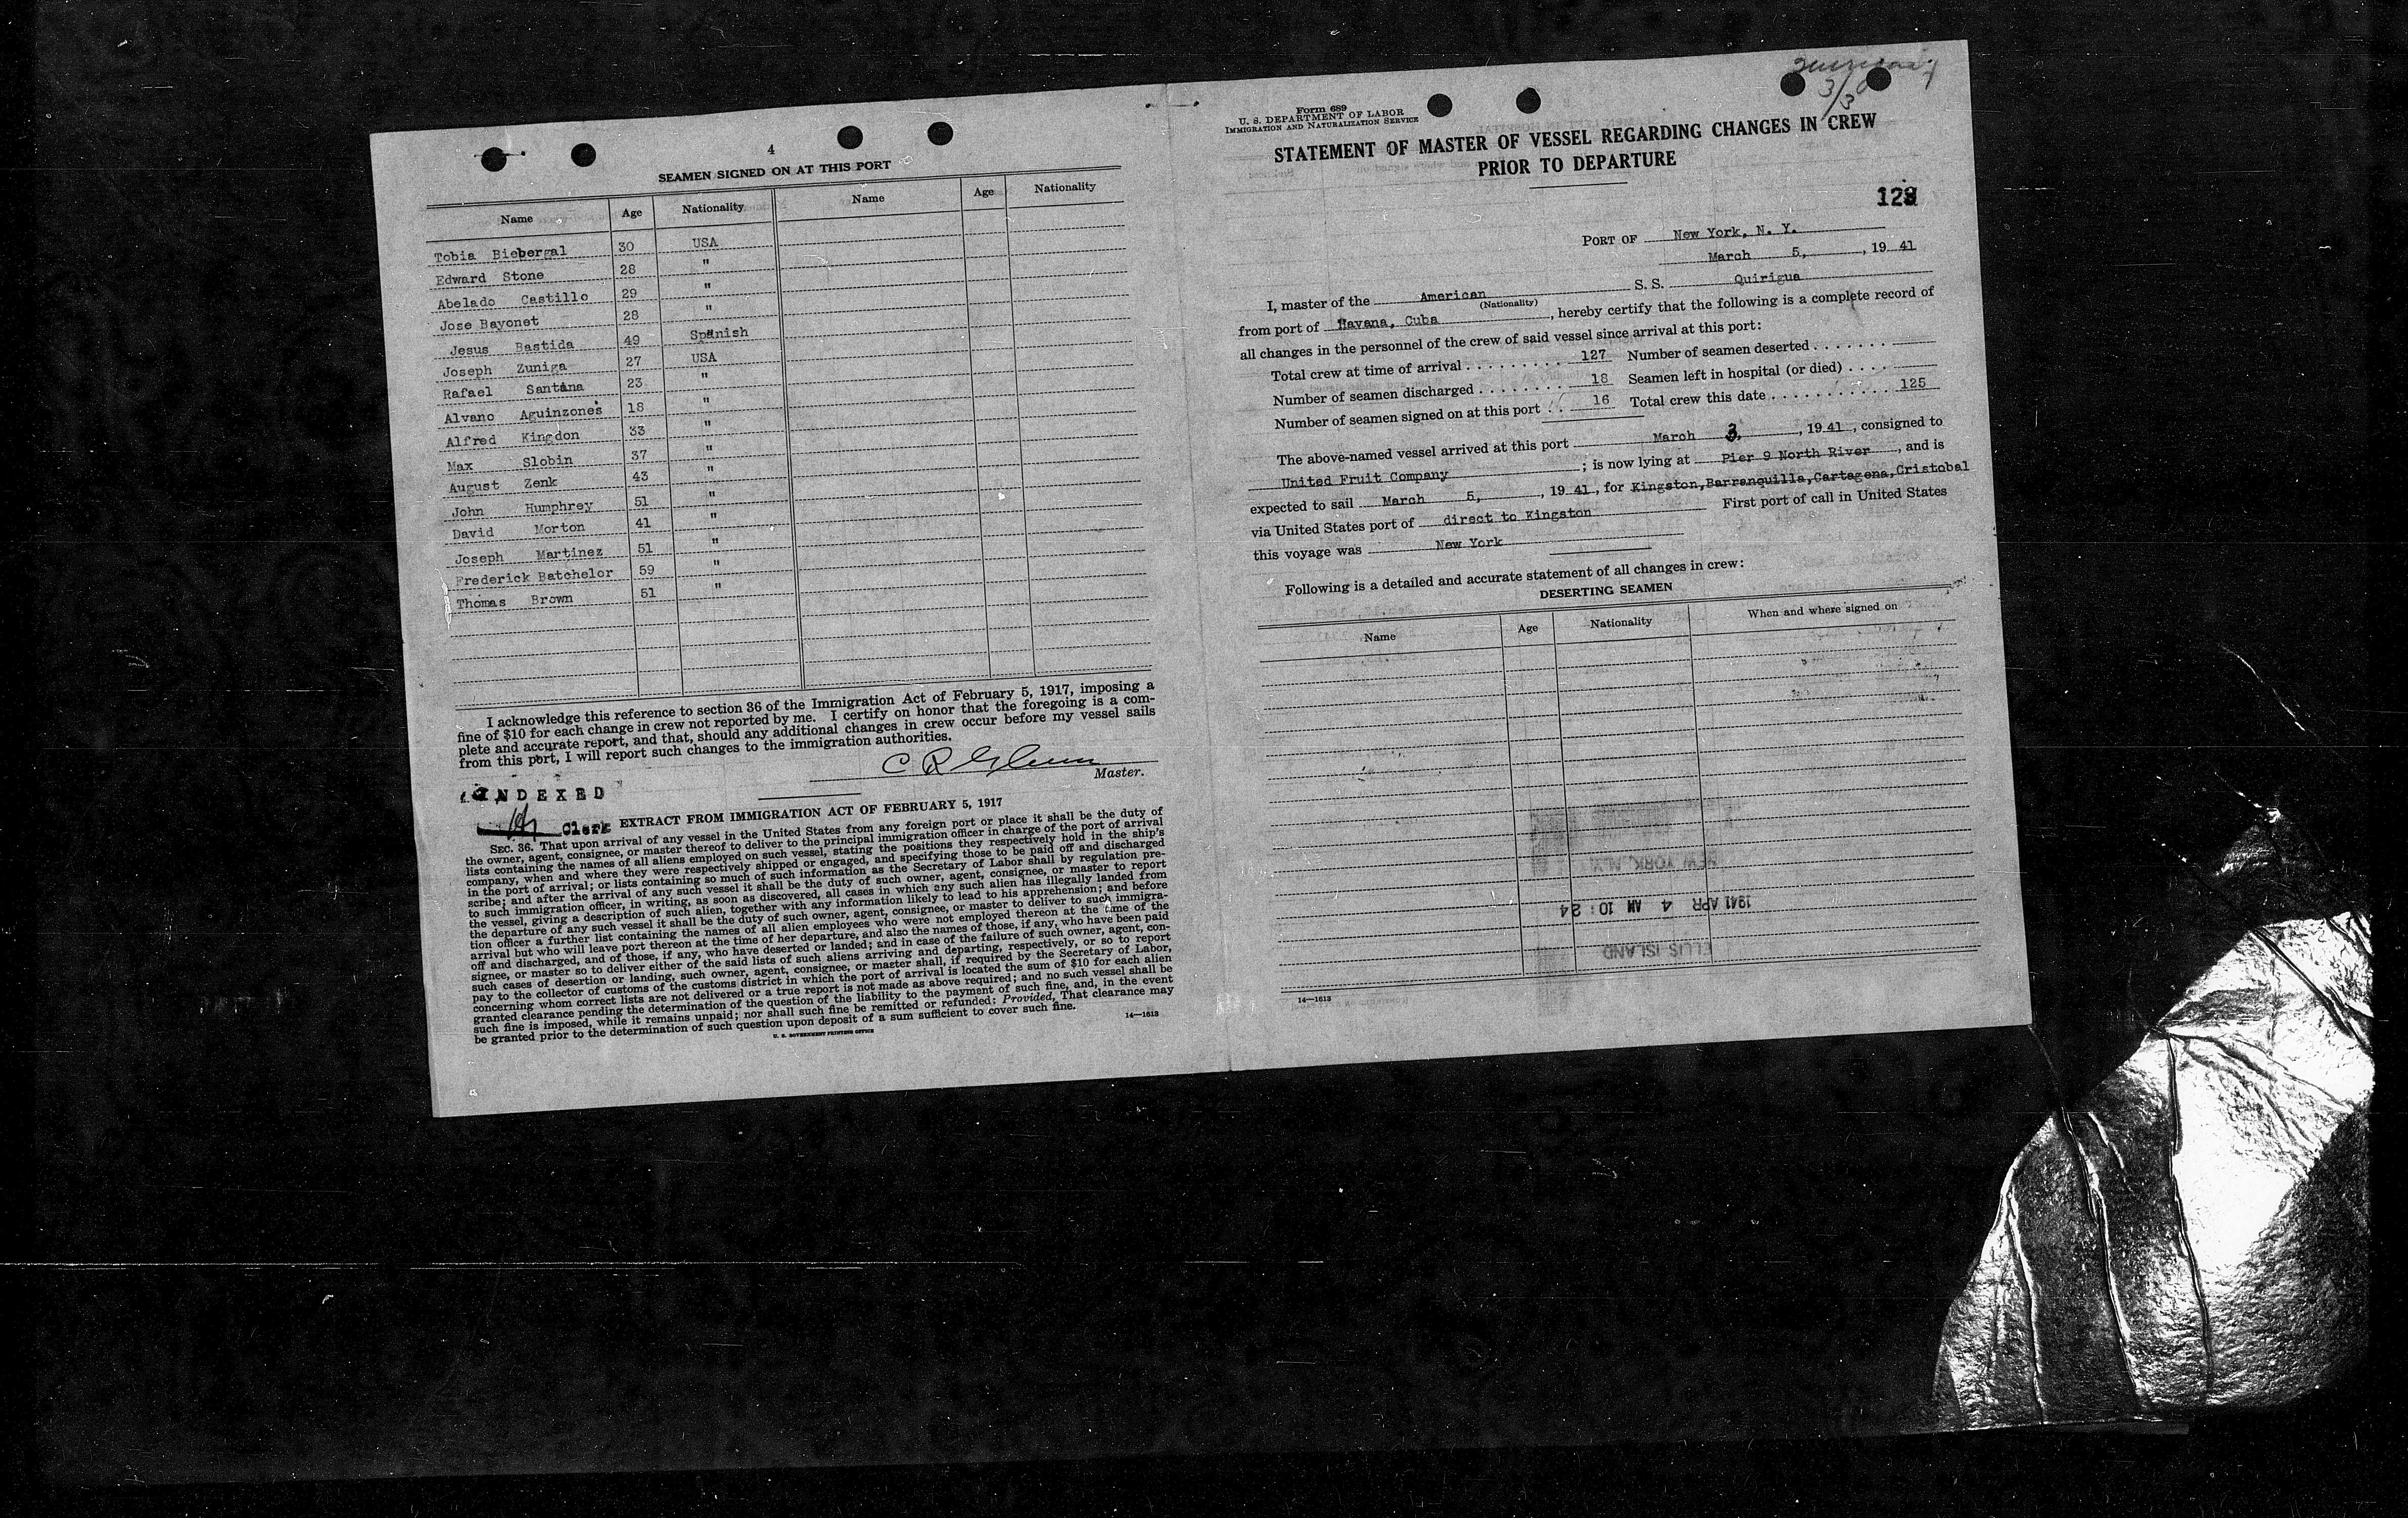 4
SEAMEN SIGNED ON AT THIS PORT
Name Age Nationality Name Age Nationality
Tobia Biebergal 30 USA
Edward Stone 28 "
Abelado Castillo 29 "
Jose Bayonet 28 "
Jesus Bastida 49 Spanish
Joseph Zuniga 27 USA
Rafael Santana 23 "
Alvano Aguinzones 18 "
Alfred Kingdon 33 "
Max Slobin 37 "
August Zenk 43 "
John Humphrey 51 "
David Morton 41 "
Joseph Martinez 51 "
Frederick Batchelor 59 "
Thomas Brown 51 "
I acknowledge this reference to section 36 of the Immigration Act of February 5, 1917, imposing a
fine of $10 for each change in crew not reported by me. I certify on honor that the foregoing is a com-
plete and accurate report, and that, should any additional changes in crew occur before my vessel sails
from this port, I will report such changes to the immigration authorities.
C R Glenn
Master.
INDEXED
Clerk
EXTRACT FROM IMMIGRATION ACT OF FEBRUARY 5, 1917
SEC. 36. That upon arrival of any vessel in the United States from any foreign port or place it shall be the duty of
the owner, agent, consignee, or master thereof to deliver to the principal immigration officer in charge of the port of arrival
lists containing the names of all aliens employed on such vessel, stating the positions they respectively hold in the ship's
company, when and where they were respectively shipped or engaged, and specifying those to be paid off and discharged
in the port of arrival; or lists containing so much of such information as the Secretary of Labor shall by regulation pre-
scribe; and after the arrival of any such vessel it shall be the duty of such owner, agent, consignee, or master to report
to such immigration officer, in writing, as soon as discovered, all cases in which any such alien has illegally landed from
the vessel, giving a description of such alien, together with any information likely to lead to his apprehension; and before
the departure of any such vessel it shall be the duty of such owner, agent, consignee, or master to deliver to such immigra-
tion officer a further list containing the names of all alien employees who were not employed thereon at the time of the
arrival but who will leave port thereon at the time of her departure, and also the names of those, if any, who have been paid
off and discharged, and of those, if any, who have deserted or landed; and in case of the failure of such owner, agent, con-
signee, or master so to deliver either of the said lists of such aliens arriving and departing, respectively, or so to report
such cases of desertion or landing, such owner, agent, consignee, or master shall, if required by the Secretary of Labor,
pay to the collector of customs of the customs district in which the port of arrival is located the sum of $10 for each alien
concerning whom correct lists are not delivered or a true report is not made as above required; and no such vessel shall be
granted clearance pending the determination of the question of the liability to the payment of such fine, and, in the event
such fine is imposed, while it remains unpaid; nor shall such fine be remitted or refunded: Provided, That clearance may
be granted prior to the determination of such question upon deposit of a sum sufficient to cover such fine.
U. S. GOVERNMENT PRINTING OFFICE
14—1613
3/3
Form 689
U. S. DEPARTMENT OF LABOR
IMMIGRATION AND NATURALIZATION SERVICE
STATEMENT OF MASTER OF VESSEL REGARDING CHANGES IN CREW
PRIOR TO DEPARTURE
PORT OF New York, N. Y.
March 5, , 19 41
I, master of the American S. S. Quirigua
(Nationality)
from port of Havana, Cuba , hereby certify that the following is a complete record of
all changes in the personnel of the crew of said vessel since arrival at this port:
Total crew at time of arrival 127 Number of seamen deserted
Number of seamen discharged 18 Seamen left in hospital (or died)
Number of seamen signed on at this port 16 Total crew this date 125
The above-named vessel arrived at this port March 3, , 19 41 , consigned to
United Fruit Company ; is now lying at Pier 9 North River , and is
expected to sail March 5, , 19 41 , for Kingston,Barranquilla,Cartagena,Cristobal
via United States port of direct to Kingston First port of call in United States
this voyage was New York
Following is a detailed and accurate statement of all changes in crew:
DESERTING SEAMEN
Name Age Nationality When and where signed on
NEW YORK, N.Y.
1941 APR 4 AM 10:24
ELLIS ISLAND
14—1613